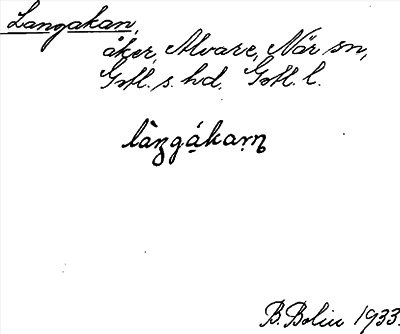 Langakan,
åker, Alvare, När sn,
Gotl. s. hd. Gotl. l.
làŋgá̱kaṃ
B. Bolin 1933.